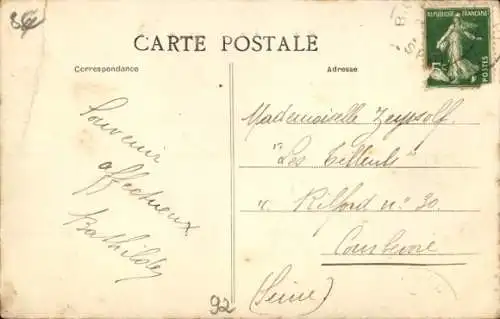 CARTE POSTALE
Correspondance
Adresse
REPUBLIQUE FRANÇAISE
POSTES
Souvenir
affectueux
Bathilde
Mademoiselle
"Les Tilleuls"
n° 30
Courbevoie
(Seine)
92